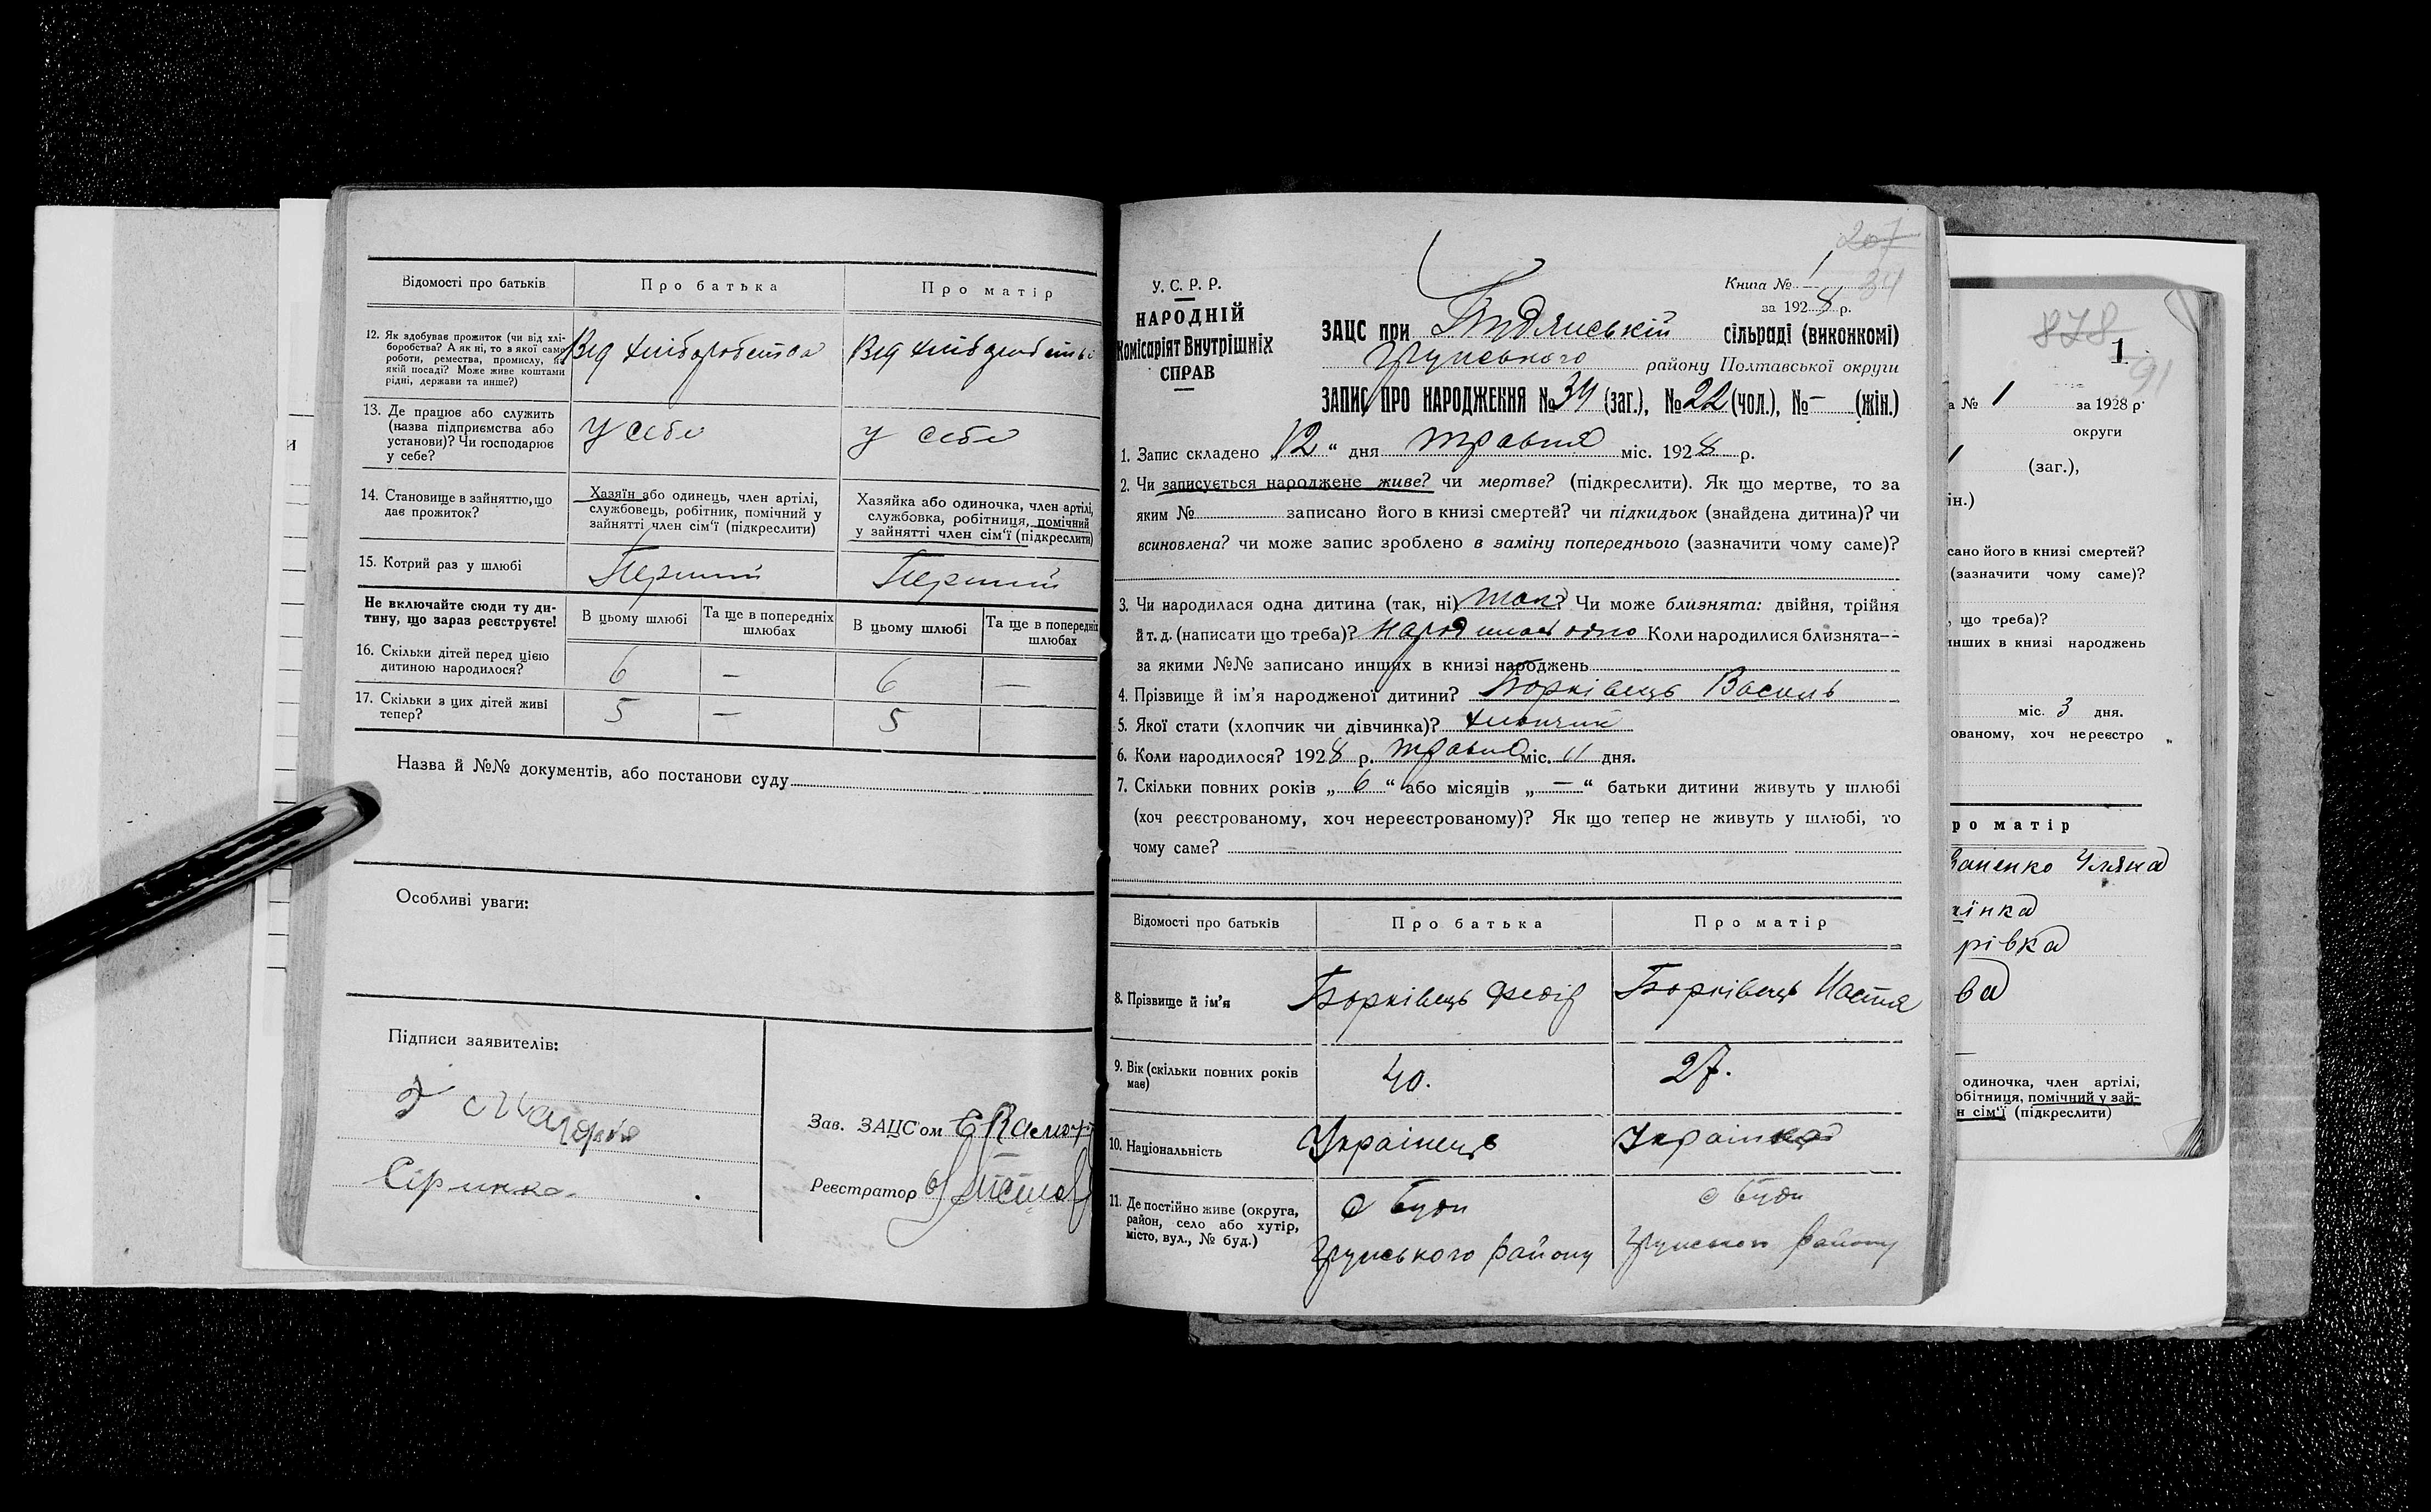 Відомості про батьків
Про батька
Про матір
12. Як здобуває прожиток (чи від хлі-
боробства? А як ні, то з якої саме
роботи, ремества, промислу, на
якій посаді? Може живе коштами
рідні, держави та инше?)
Від хліборобства
Від хліборобства
13. Де працює або служить
(назва підприємства або
установи)? Чи господарює
у себе?
У себе
У себе
14. Становище в зайняттю, що
дає прожиток?
Хазяїн або одинець, член артілі,
службовець, робітник, помічний у
зайнятті член сім'ї (підкреслити)
Хазяйка або одиночка, член артілі,
службовка, робітниця, помічний
у зайнятті член сім'ї (підкреслити)
15. Котрий раз у шлюбі
Перший
Перший
Не включайте сюди ту ди-
тину, що зараз реєструєте!
В цьому шлюбі
Та ще в попередніх
шлюбах
В цьому шлюбі
Та ще в попередніх
шлюбах
16. Скільки дітей перед цією
дитиною народилося?
6 — 6 —
17. Скільки з цих дітей живі
тепер?
5 — 5
Назва й №№ документів, або постанови суду
Особливі уваги:
Підписи заявителів:
Зав. ЗАЦС'ом
Реєстратор
У. С. Р. Р.
НАРОДНІЙ
Комісаріят Внутрішніх
СПРАВ
207
34
Книга № 1
за 1928 р.
ЗАЦС при Будянській сільраді (виконкомі)
Грунського району Полтавської округи
ЗАПИС ПРО НАРОДЖЕННЯ № 34 (заг.), № 22 (чол.), № — (жін.)
1. Запис складено „12“ дня травня міс. 1928 р.
2. Чи записується народжене живе? чи мертве? (підкреслити). Як що мертве, то за
яким № записано його в книзі смертей? чи підкидьок (знайдена дитина)? чи
всиновлена? чи може запис зроблено в заміну попереднього (зазначити чому саме)?
3. Чи народилася одна дитина (так, ні) так? Чи може близнята: двійня, трійня
й т. д. (написати що треба)? народилось одно Коли народилися близнята—
за якими №№ записано инших в книзі народжень
4. Прізвище й ім'я народженої дитини? Борківець Василь
5. Якої стати (хлопчик чи дівчинка)? хлопчик
6. Коли народилося? 1928 р. травня міс. 11 дня.
7. Скільки повних років „6“ або місяців „—“ батьки дитини живуть у шлюбі
(хоч реєстрованому, хоч нереєстрованому)? Як що тепер не живуть у шлюбі, то
чому саме?
Відомості про батьків
Про батька
Про матір
8. Прізвище й ім'я
Борківець Федір
Борківець Настя
9. Вік (скільки повних років
має)
40.
27.
10. Національність
Українець
Українка
11. Де постійно живе (округа,
район, село або хутір,
місто, вул., № буд.)
с Буди
Грунського району
с Буди
Грунського району
878
1
91
а № 1 за 1928 р.
округи
(заг.),
ін.)
сано його в книзі смертей?
(зазначити чому саме)?
, що треба)?
инших в книзі народжень
міс. 3 дня.
ованому, хоч нереєстро
ро матір
Уляна
рівка
ва
одиночка, член артілі,
обітниця, помічний у зай-
н сім'ї (підкреслити)